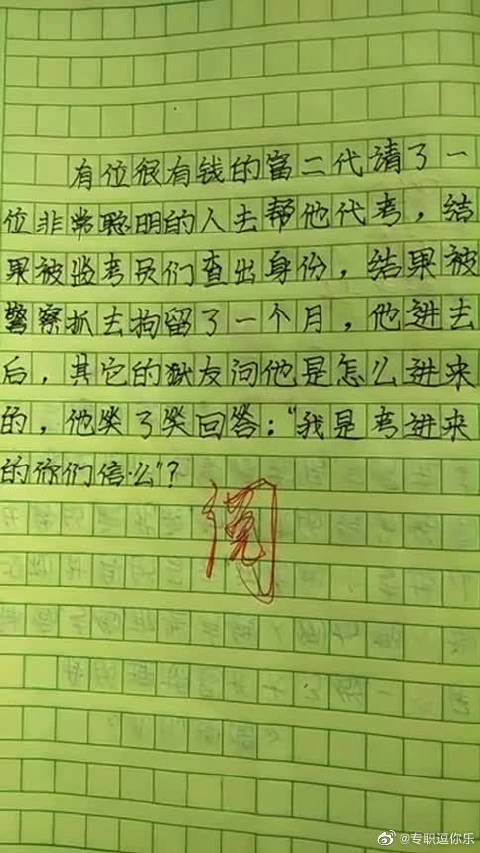 有位很有钱的富二代请了一
位非常聪明的人去帮他代考，结
果被监考员们查出身份，结果被
警察抓去拘留了一个月，他进去
后，其它的狱友问他是怎么进来
的，他笑了笑回答：“我是考进来
的你们信么”？
阅
@专职逗你乐